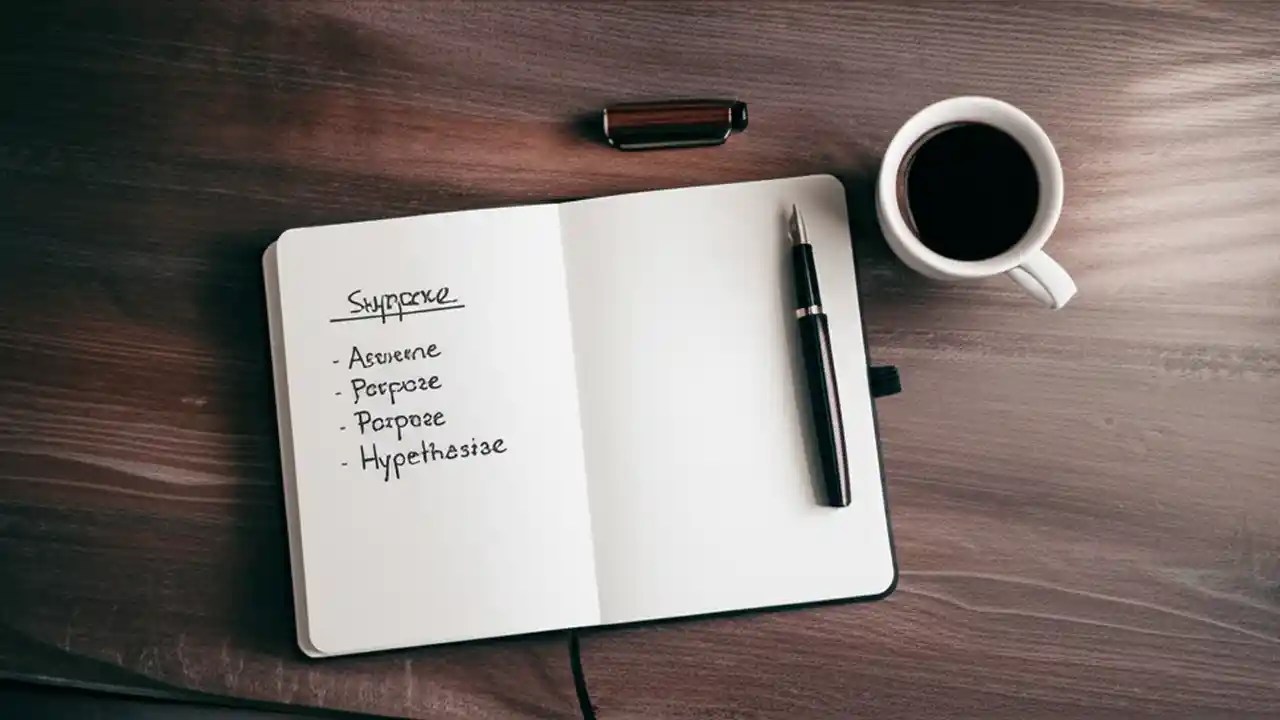 Suppose
- Assume
- Perpose
- Porpose
- Hypothesise